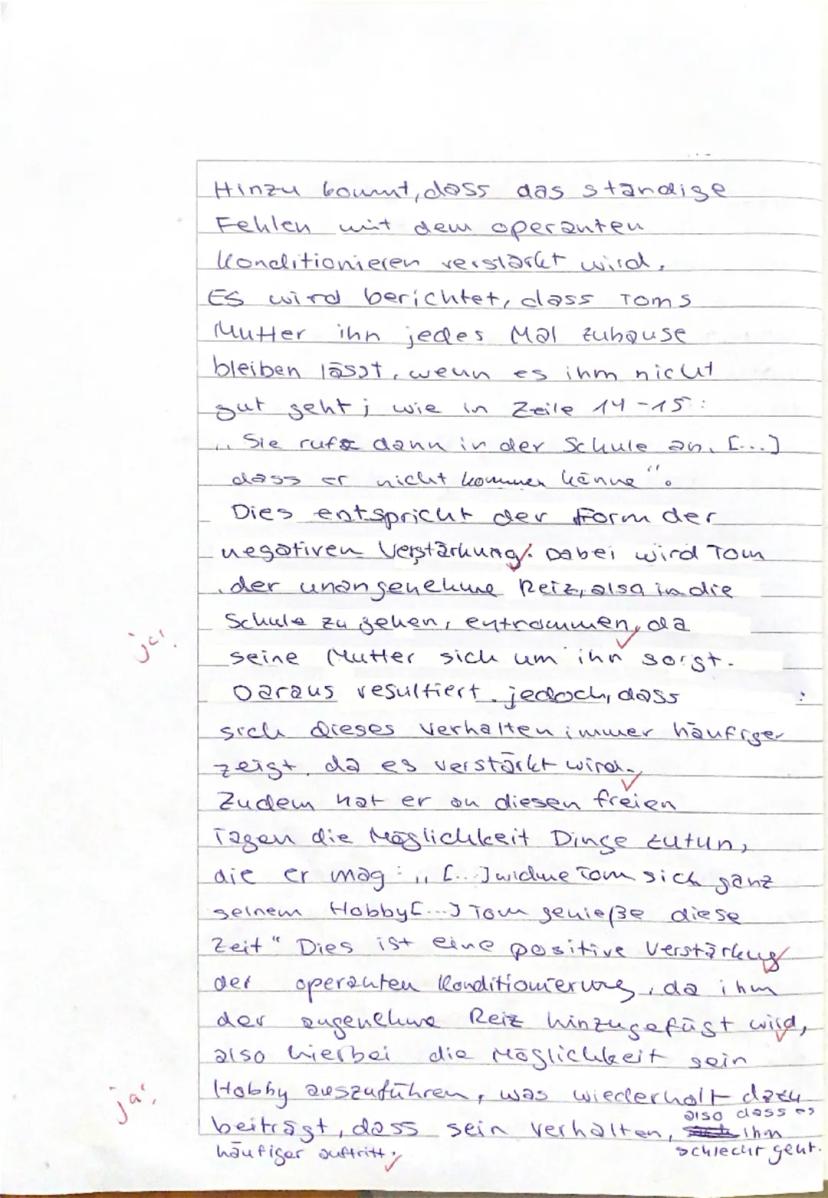 Hinzu kommt, dass das ständige
Fehlen mit dem operanten
Konditionieren verstärkt wird.
Es wird berichtet, dass Toms
Mutter ihn jedes Mal zuhause
bleiben lässt, wenn es ihm nicht
gut geht; wie in Zeile 14-15:
„Sie rufe dann in der Schule an, [...]
dass er nicht kommen könne".
Dies entspricht der Form der
negativen Verstärkung. Dabei wird Tom
der unangenehme Reiz, also in die
Schule zu gehen, entnommen, da
ja!
seine Mutter sich um ihn sorgt.
Daraus resultiert jedoch, dass
sich dieses Verhalten immer häufiger
zeigt, da es verstärkt wird.
Zudem hat er an diesen freien
Tagen die Möglichkeit Dinge zutun,
die er mag: „[...] widme Tom sich ganz
seinem Hobby [...] Tom genieße diese
Zeit" Dies ist eine positive Verstärkung
der operanten Konditionierung, da ihm
der angenehme Reiz hinzugefügt wird,
also hierbei die Möglichkeit sein
ja!
Hobby auszuführen, was wiederholt dazu
beiträgt, dass sein Verhalten, also dass es ihm schlecht geht.
häufiger auftritt.